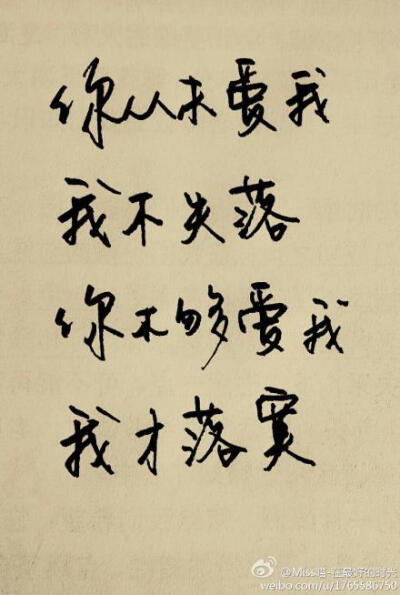 你从未爱我
我不失落
你不够爱我
我才落寞
@Miss喵-在最好的时光
weibo.com/u/1765586750